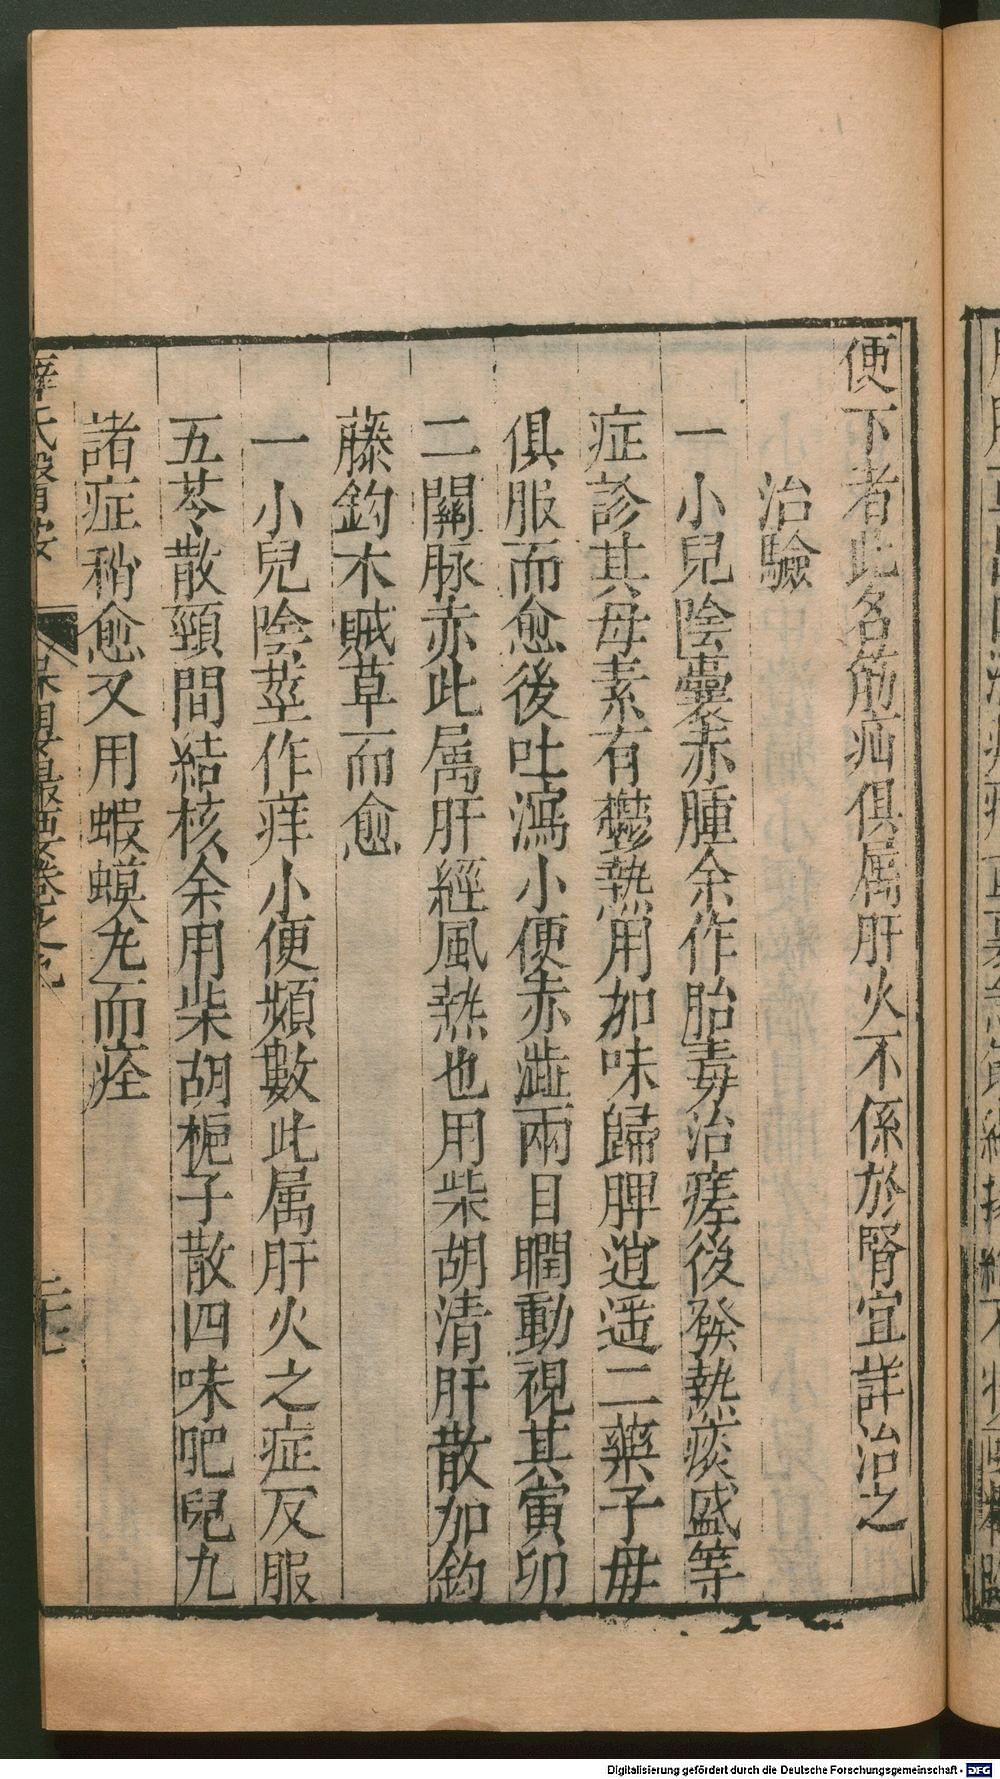 便下者此名筋疝俱属肝火不係於腎宜詳治之
治驗
一小兒陰囊赤腫余作胎毒治瘥後發熱痰盛等
症診其母素有鬱熱用加味歸脾逍遥二藥子母
俱服而愈後吐瀉小便赤澁兩目瞤動視其寅卯
二關脉赤此属肝經風熱也用柴胡清肝散加鈎
藤鈎木賊草而愈
一小兒陰莖作痒小便頻數此属肝火之症反服
五苓散頸間結核余用柴胡梔子散四味肥兒丸
諸症稍愈又用蝦蟆丸而痊
薛氏醫按
保嬰撮要卷之九
二十七
Digitalisierung gefördert durch die Deutsche Forschungsgemeinschaft - DFG